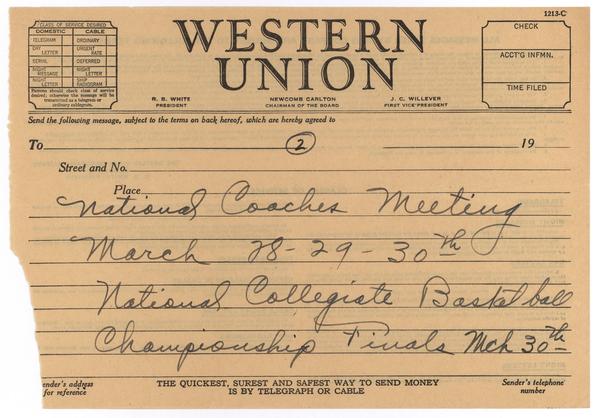 1213-C
CLASS OF SERVICE DESIRED
DOMESTIC CABLE
TELEGRAM ORDINARY
DAY LETTER URGENT RATE
SERIAL DEFERRED
NIGHT MESSAGE NIGHT LETTER
NIGHT LETTER SHIP RADIOGRAM
Patrons should check class of service
desired; otherwise the message will be
transmitted as a telegram or
ordinary cablegram.
WESTERN
UNION
R. B. WHITE
PRESIDENT
NEWCOMB CARLTON
CHAIRMAN OF THE BOARD
J. C. WILLEVER
FIRST VICE-PRESIDENT
CHECK
ACCT'G INFMN.
TIME FILED
Send the following message, subject to the terms on back hereof, which are hereby agreed to
To 2 19
Street and No.
Place
National Coaches Meeting
March 28-29-30th
National Collegiate Basketball
Championship Finals Mch 30th
ender's address
for reference
THE QUICKEST, SUREST AND SAFEST WAY TO SEND MONEY
IS BY TELEGRAPH OR CABLE
Sender's telephone
number